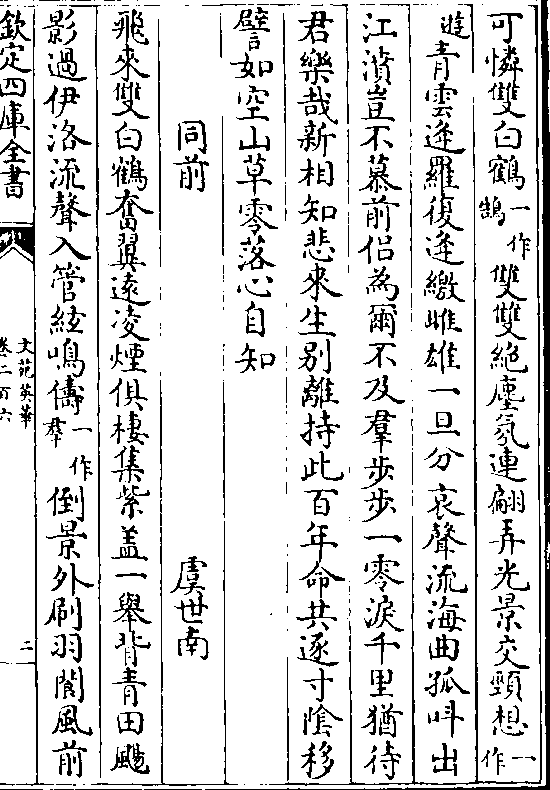 可憐雙白鶴一作鵠雙雙絶塵氛連翩弄光景交頸想一作
遊青雲逢羅復逢繳雌雄一旦分哀聲流海曲孤叫出
江濱豈不慕前侣為爾不及羣步步一零淚千里猶待
君樂哉新相知悲來生别離持此百年命共逐寸陰移
譬如空山草零落心自知
同前 虞世南
飛來雙白鶴奮翼遠凌煙俱棲集紫盖一舉背青田颺
影過伊洛流聲入管絃鳴儔一作羣倒景外刷羽閬風前
欽定四庫全書
文苑英華
卷二百六
二